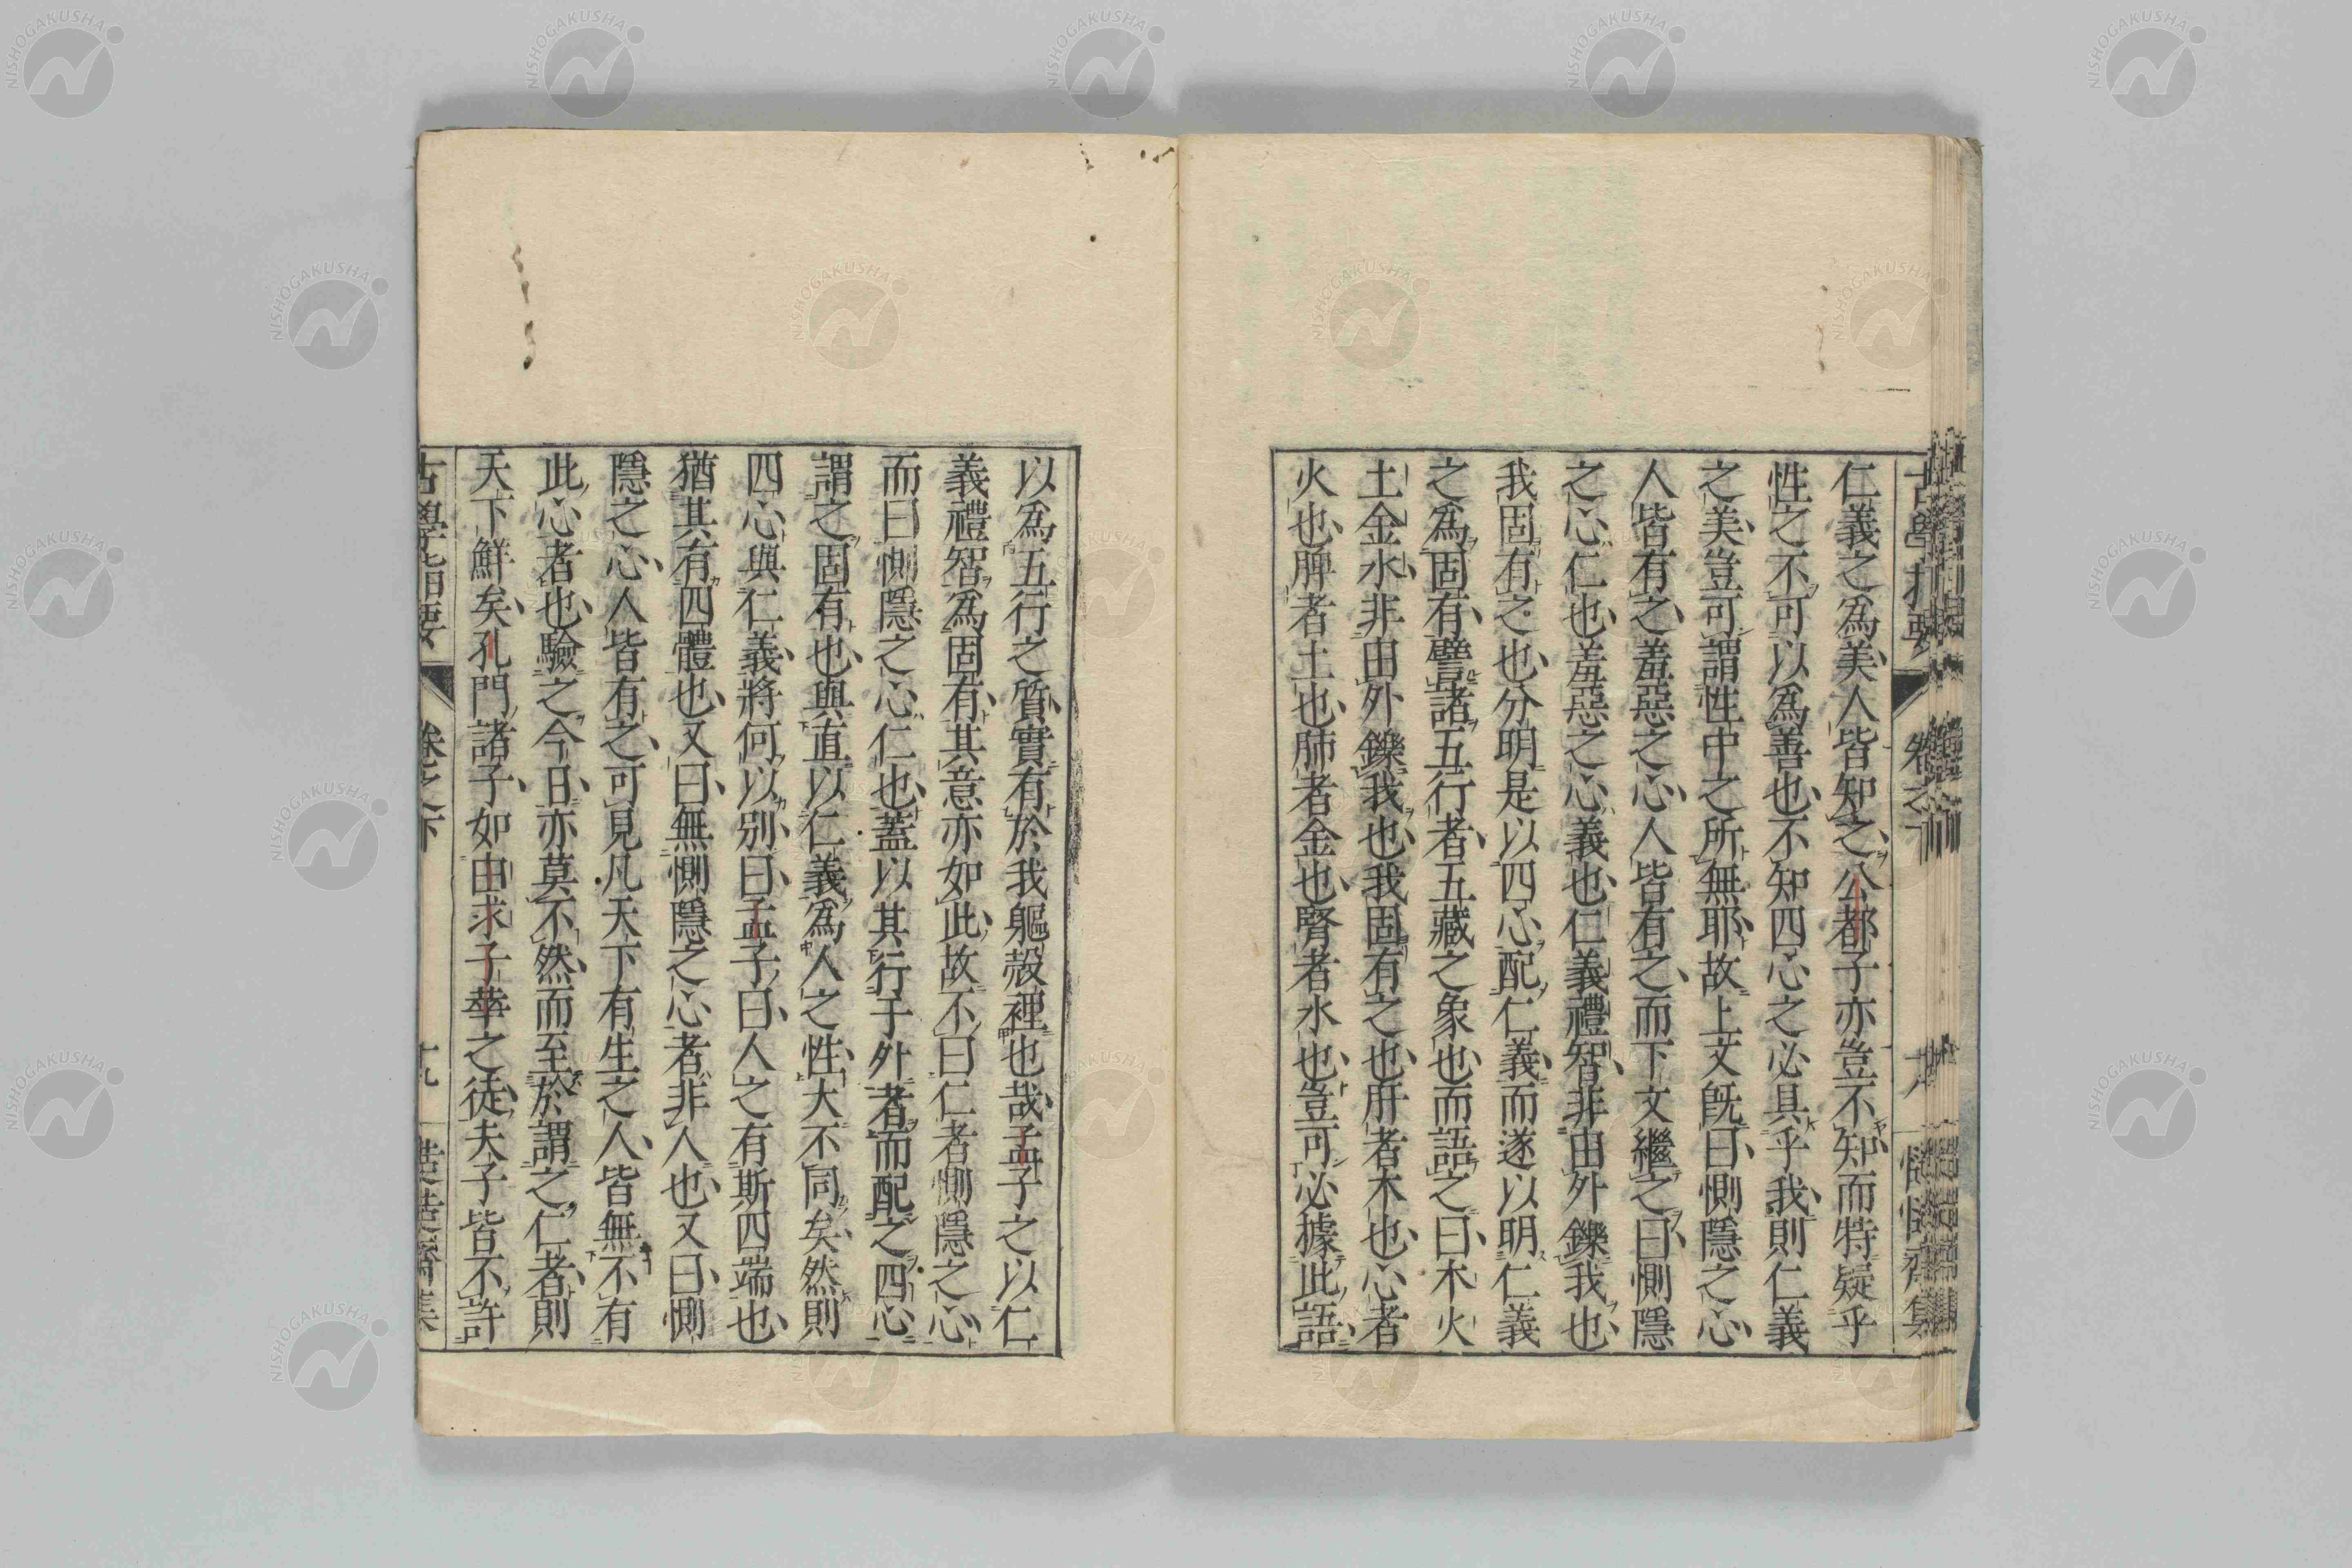 仁義之爲美、人皆知之、公都子亦豈不知而特疑乎
性之不可以爲善也、不知四心之必具乎我、則仁義
之美、豈可謂性中之所無耶、故上文既曰、惻隱之心、
人皆有之、羞惡之心、人皆有之、而下文繼之曰、惻隱
之心、仁也、羞惡之心、義也、仁義禮智、非由外鑠我也、
我固有之也、分明是以四心、配仁義、而遂以明仁義
之爲固有、譬諸五行者、五藏之象也、而語之曰、木火
土金水、非由外鑠我也、我固有之也、肝者木也、心者
火也、脾者土也、肺者金也、腎者水也、豈可必據此語、
以爲五行之質、實有於我軀殼裡也哉、孟子之以仁
義禮智爲固有、其意亦如此、故不曰仁者惻隱之心、
而曰惻隱之心仁也、蓋以其行于外者、而配之四心、
謂之固有也、與直以仁義爲人之性、大不同矣、然則
四心與仁義、將何以別、曰、孟子曰、人之有斯四端也、
猶其有四體也、又曰、無惻隱之心者、非人也、又曰、惻
隱之心、人皆有之、可見凡天下有生之人、皆無不有
此心者也、驗之今日、亦莫不然、而至於謂之仁者、則
天下鮮矣、孔門諸子、如由求子華之徒、夫子皆不許
古學指要
卷之下
十九
NISHOGAKUSHA